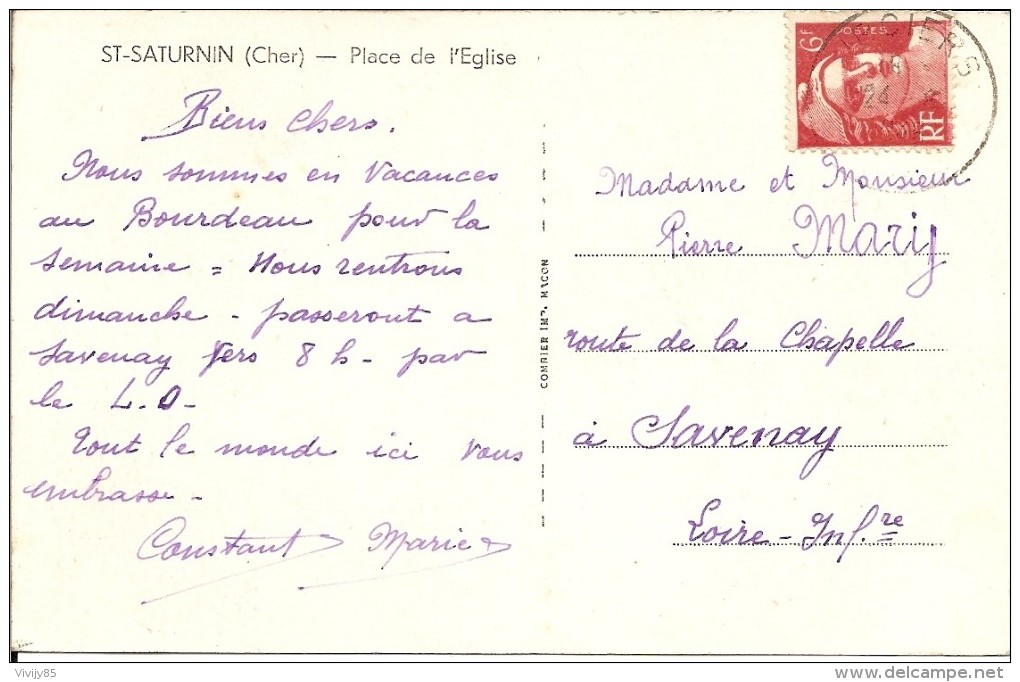 ST-SATURNIN (Cher) — Place de l'Eglise
Biens chers.
Nous sommes en Vacances
au Bourdeau pour la
semaine = Nous rentrons
dimanche - passeront a
Savenay vers 8 h - par
le L.O-
Tout le monde ici vous
embrasse -
Constant Marie
COMBIER IMP. MACON
6F POSTES
RF
CIERS
24
Madame et Monsieur
Pierre Mary
route de la Chapelle
à Savenay
Loire-Inf.re
Vivijy85
www.delcampe.net